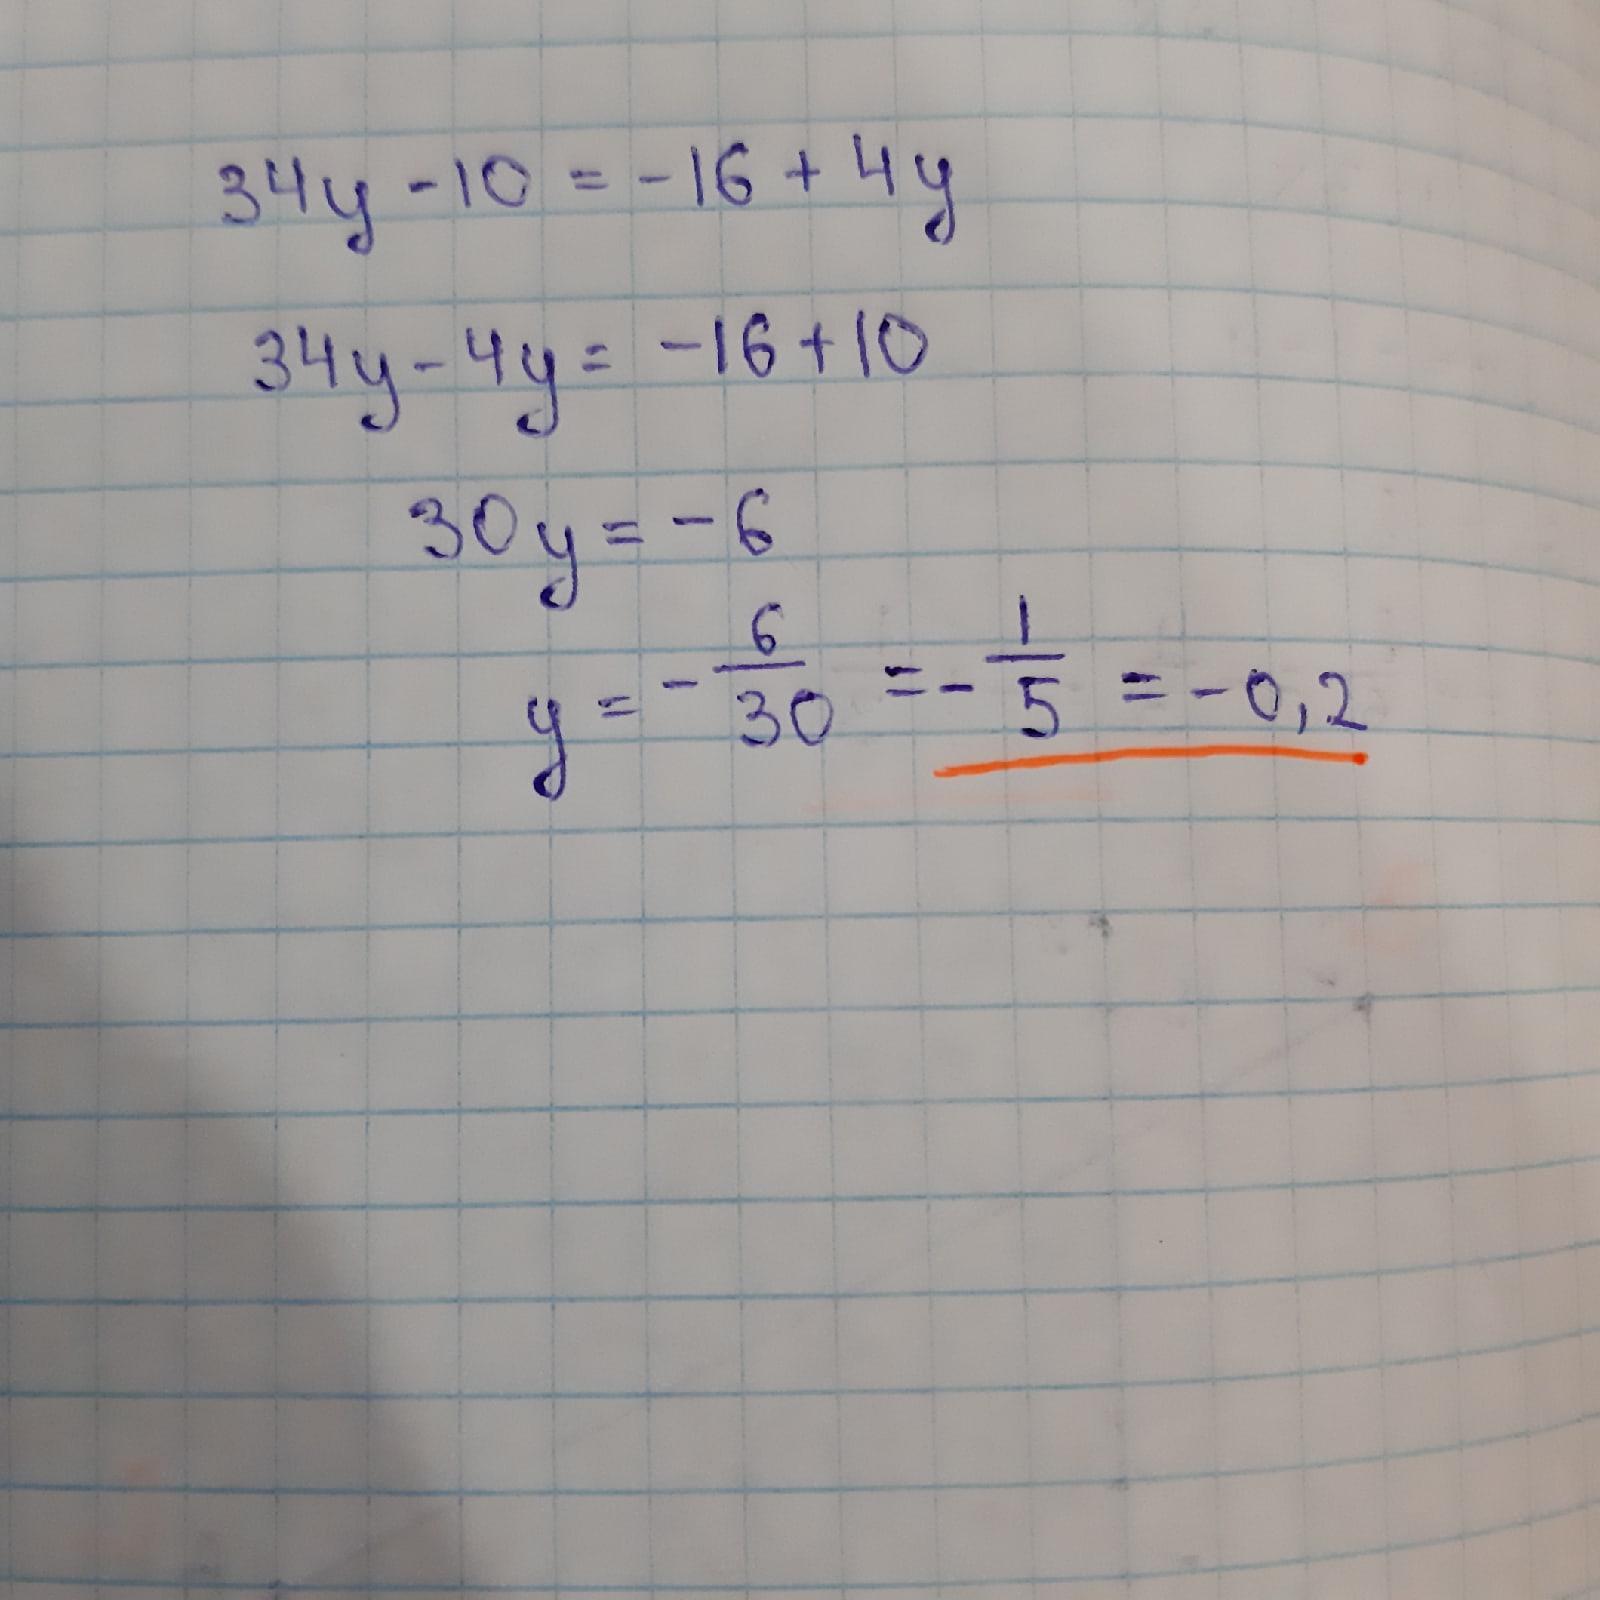 34y - 10 = -16 + 4y
34y - 4y = -16 + 10
30y = -6
y = - 6/30 = - 1/5 = -0,2